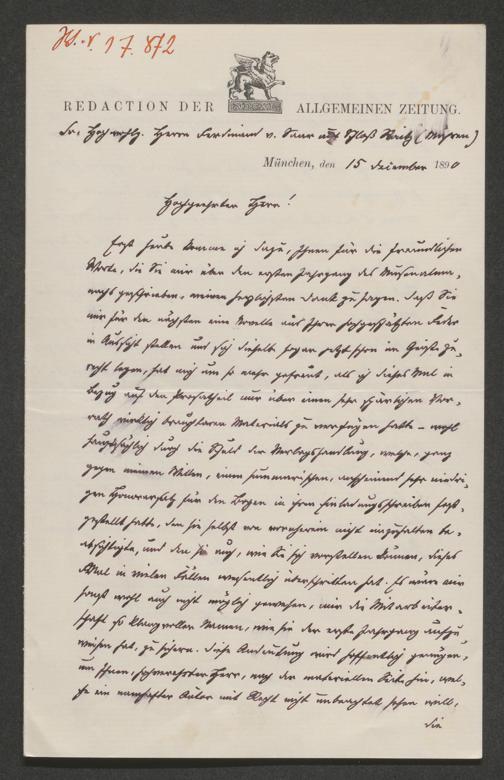 J. N. 17.872
REDACTION DER ALLGEMEINEN ZEITUNG.
Sr. Hochwohlg. Herrn Ferdinand v. Saar auf Schloß Raitz (Mähren)
München, den 15 Dezember 1890
Hochgeehrter Herr!
Erst heute komme ich dazu, Ihnen für die freundlichen
Worte, die Sie mir über den ersten Jahrgang des Musenalma-
nachs geschrieben, meinen herzlichsten Dank zu sagen. Daß Sie
mir für den nächsten eine Novelle aus Ihrer hochgeschätzten Feder
in Aussicht stellen und sich dieselbe sogar jetzt schon im Geiste zu-
recht legen, hat mich um so mehr gefreut, als ich dieses Mal in
Bezug auf den Prosatheil nur über einen sehr spärlichen Vor-
rath wirklich brauchbaren Materials zu verfügen hatte – wohl
hauptsächlich durch die Schuld der Verlagshandlung, welche, ganz
gegen meinen Willen, einen summarischen, anscheinend sehr niedri-
gen Honorarsatz für den Bogen in ihrem Einladungsschreiben fest-
gestellt hatte, den sie selbst von vornherein nicht einzuhalten be-
absichtigte, und den sie auch, wie Sie sich vorstellen können, dieses
Mal in vielen Fällen wesentlich überschritten hat. Es wäre mir
sonst wohl auch nicht möglich gewesen, mir die Mitarbeiter-
schaft so klangvoller Namen, wie sie der erste Jahrgang aufzu-
weisen hat, zu sichern. Diese Andeutung wird hoffentlich genügen,
um Ihnen, hochverehrter Herr, nach der materiellen Seite hin, wel-
che ein namhafter Autor mit Recht nicht unbeachtet sehen will,
die